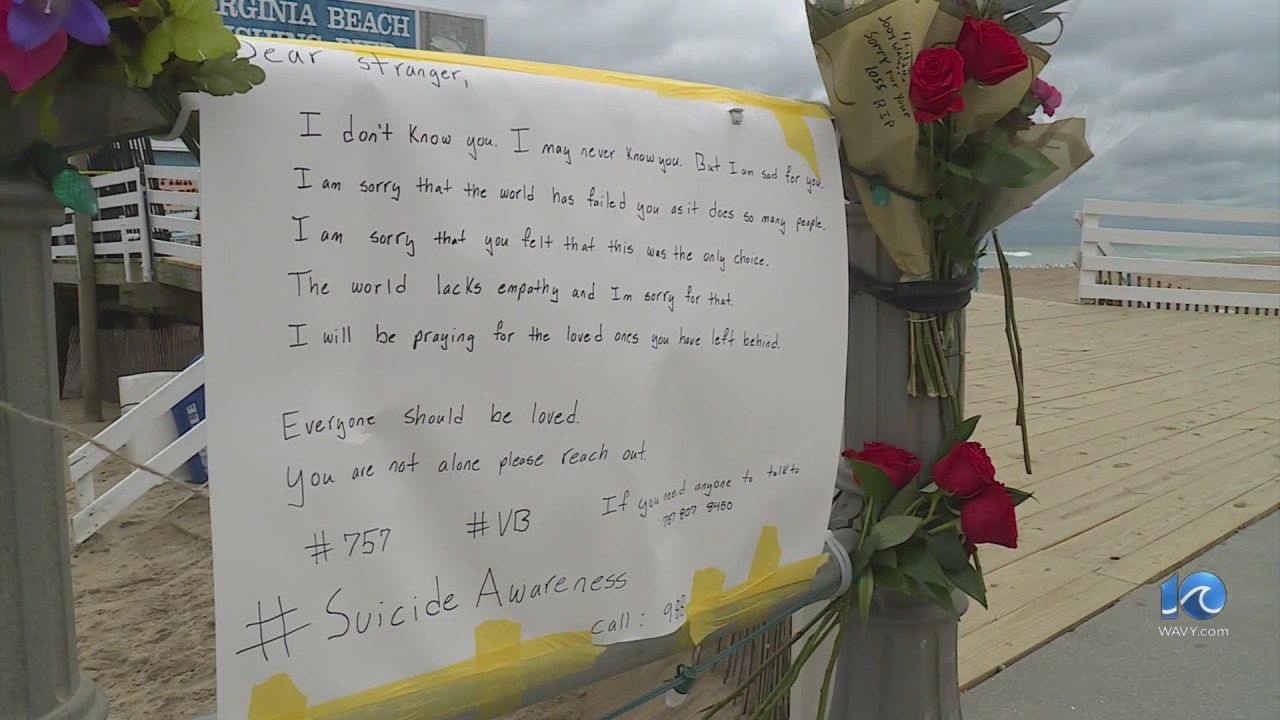 VIRGINIA BEACH
FISHING PIER
Dear stranger,
I don't know you. I may never know you. But I am sad for you.
I am sorry that the world has failed you as it does so many people.
I am sorry that you felt that this was the only choice.
The world lacks empathy and Im sorry for that.
I will be praying for the loved ones you have left behind.
Everyone should be loved.
You are not alone please reach out.
If you need anyone to talk to
757 807 8450
#757 #VB
#Suicide Awareness
call: 988
Sorry For Your
Loss R.I.P
10
WAVY.com